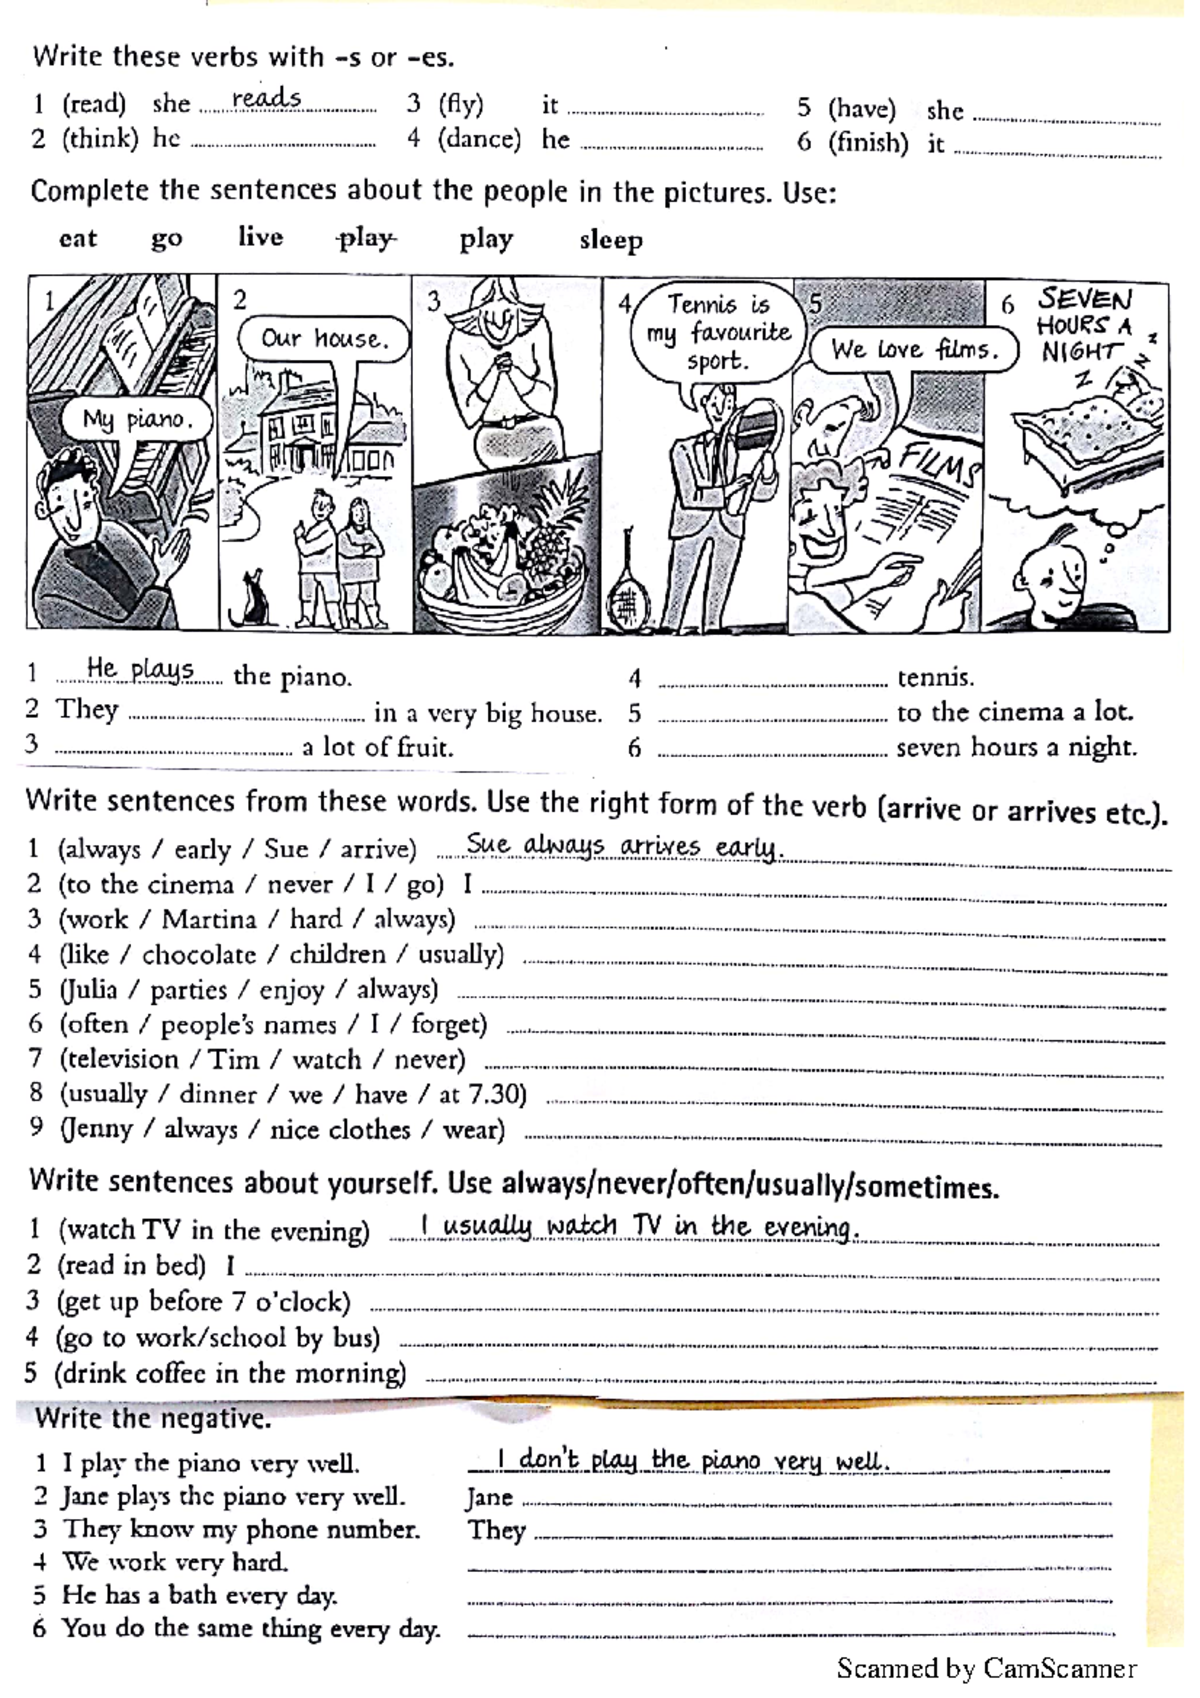 Write these verbs with -s or -es.
1 (read) she reads 3 (fly) it 5 (have) she
2 (think) he 4 (dance) he 6 (finish) it
Complete the sentences about the people in the pictures. Use:
eat go live play play sleep
1
My piano.
2
Our house.
3
4
Tennis is
my favourite
sport.
5
We love films.
FILMS
6
SEVEN
HOURS A
NIGHT
z
z
z
Z
1 He plays the piano. 4 tennis.
2 They in a very big house. 5 to the cinema a lot.
3 a lot of fruit. 6 seven hours a night.
Write sentences from these words. Use the right form of the verb (arrive or arrives etc.).
1 (always / early / Sue / arrive) Sue always arrives early.
2 (to the cinema / never / I / go) I
3 (work / Martina / hard / always)
4 (like / chocolate / children / usually)
5 (Julia / parties / enjoy / always)
6 (often / people's names / I / forget)
7 (television / Tim / watch / never)
8 (usually / dinner / we / have / at 7.30)
9 (Jenny / always / nice clothes / wear)
Write sentences about yourself. Use always/never/often/usually/sometimes.
1 (watch TV in the evening) I usually watch TV in the evening.
2 (read in bed) I
3 (get up before 7 o'clock)
4 (go to work/school by bus)
5 (drink coffee in the morning)
Write the negative.
1 I play the piano very well. I don't play the piano very well.
2 Jane plays the piano very well. Jane
3 They know my phone number. They
4 We work very hard.
5 He has a bath every day.
6 You do the same thing every day.
Scanned by CamScanner